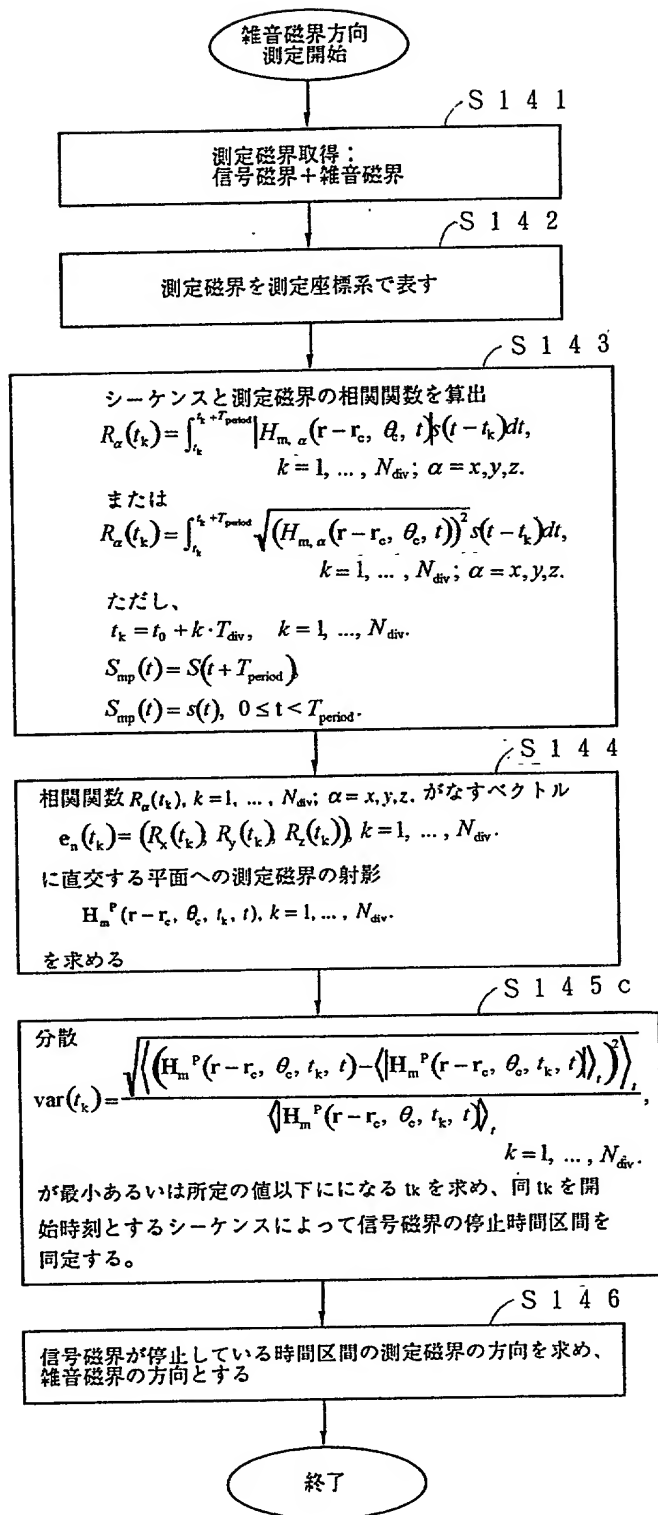 雑音磁界方向
測定開始
S 1 4 1
測定磁界取得：
信号磁界＋雑音磁界
S 1 4 2
測定磁界を測定座標系で表す
S 1 4 3
シーケンスと測定磁界の相関関数を算出
R_α(t_k) = ∫_{t_k}^{t_k+T_period} |H_{m, α}(r − r_c, θ_c, t)|s(t − t_k)dt,
k = 1, ... , N_div; α = x, y, z.
または
R_α(t_k) = ∫_{t_k}^{t_k+T_period} √(H_{m, α}(r − r_c, θ_c, t))² s(t − t_k)dt,
k = 1, ... , N_div; α = x, y, z.
ただし、
t_k = t_0 + k · T_div, k = 1, ..., N_div.
S_mp(t) = S(t + T_period),
S_mp(t) = s(t), 0 ≤ t < T_period.
S 1 4 4
相関関数 R_α(t_k), k = 1, ... , N_div; α = x, y, z. がなすベクトル
e_n(t_k) = (R_x(t_k), R_y(t_k), R_z(t_k)), k = 1, ... , N_div.
に直交する平面への測定磁界の射影
H_m^P(r − r_c, θ_c, t_k, t), k = 1, ... , N_div.
を求める
S 1 4 5 c
分散
var(t_k) = √⟨(H_m^P(r − r_c, θ_c, t_k, t) − ⟨|H_m^P(r − r_c, θ_c, t_k, t)|⟩_t)²⟩_t / ⟨|H_m^P(r − r_c, θ_c, t_k, t)|⟩_t ,
k = 1, ... , N_div.
が最小あるいは所定の値以下にになる tk を求め、同 tk を開
始時刻とするシーケンスによって信号磁界の停止時間区間を
同定する。
S 1 4 6
信号磁界が停止している時間区間の測定磁界の方向を求め、
雑音磁界の方向とする
終了